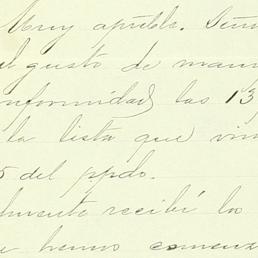 Muy apreble. Seño
el gusto de mani
nformidad las 13
la lista que vin
5 del ppdo.
lmente recibí los
e hemos comenz